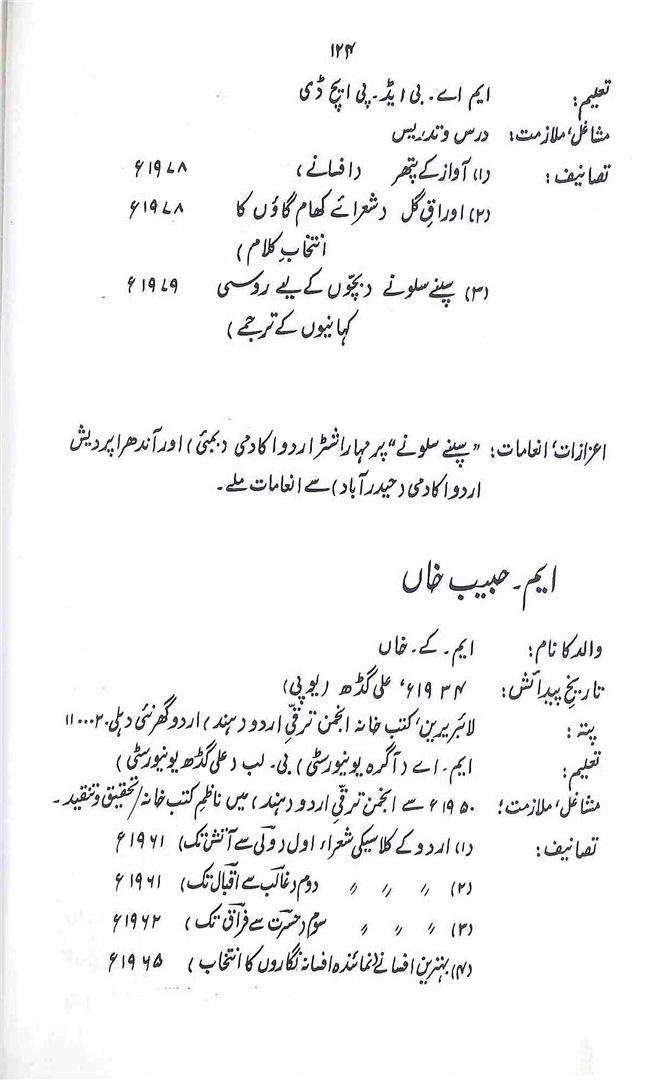 ۱۲۴
تعلیم: ایم اے۔ بی ایڈ۔ پی ایچ ڈی
مشاغل، ملازمت: درس و تدریس
تصانیف: (۱) آواز کے پتھر (افسانے) ۱۹۷۸ء
(۲) اوراقِ گل (شعرائے کھام گاؤں کا ۱۹۷۸ء
انتخابِ کلام)
(۳) سپنے سلونے (بچّوں کے لیے روسی ۱۹۷۹ء
کہانیوں کے ترجمے)
اعزازات، انعامات: "سپنے سلونے" پر مہاراشٹر اردو اکادمی (بمبئی) اور آندھرا پردیش
اردو اکادمی (حیدرآباد) سے انعامات ملے۔
ایم۔ حبیب خاں
والد کا نام: ایم۔ کے۔ خاں
تاریخ پیدائش: ۱۹۳۴ء، علی گڈھ (یوپی)
پتہ: لائبریرین، کتب خانہ انجمن ترقّیِ اردو (ہند) اردو گھر نئی دہلی ۱۱۰۰۰۲
تعلیم: ایم۔ اے (آگرہ یونیورسٹی) بی۔ لب (علی گڈھ یونیورسٹی)
مشاغل، ملازمت: ۱۹۵۰ء سے انجمن ترقّیِ اردو (ہند) میں ناظمِ کتب خانہ/تحقیق و تنقید۔
تصانیف: (۱) اردو کے کلاسیکی شعراء اول (ولی سے آتش تک) ۱۹۶۱ء
(۲) 〃 〃 〃 دوم (غالب سے اقبال تک) ۱۹۶۱ء
(۳) 〃 〃 〃 سوم (حسرت سے فراق تک) ۱۹۶۲ء
(۴) بہترین افسانے (نمائندہ افسانہ نگاروں کا انتخاب) ۱۹۶۵ء